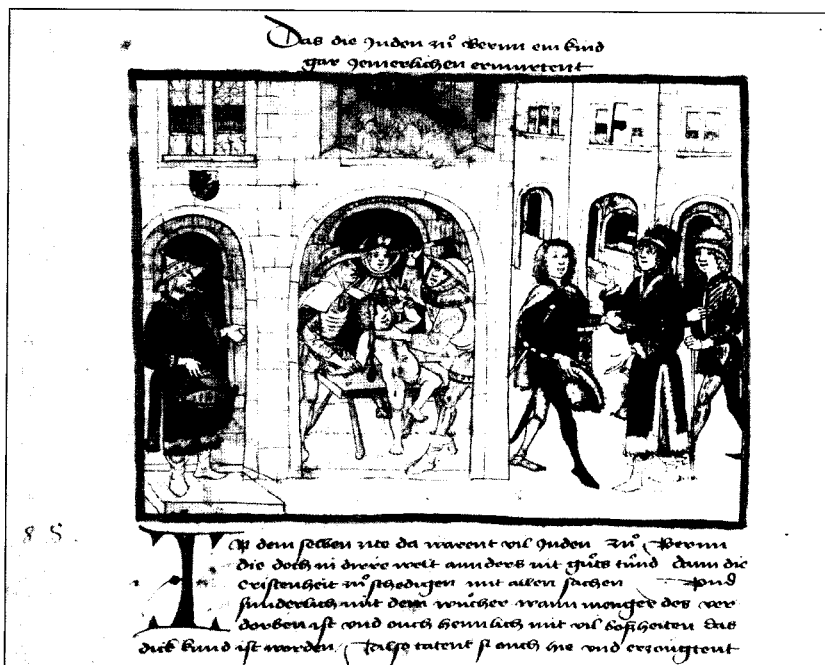 Das die Juden zů Bernn ein kind
gar jemerlichen ermurtent
85.
In dem selben zite da warent vil Juden zů Bernn
die doch in dirre welt annders nit gůts tůnd dann die
cristenheit zů schedigen mit allen sachen Und
sunderlich mit dem wůcher wann menger des ver
dorben ist und ouch heimlich mit vil boßheiten das
dick kund ist worden Also tatent si ouch hie und erzougtent